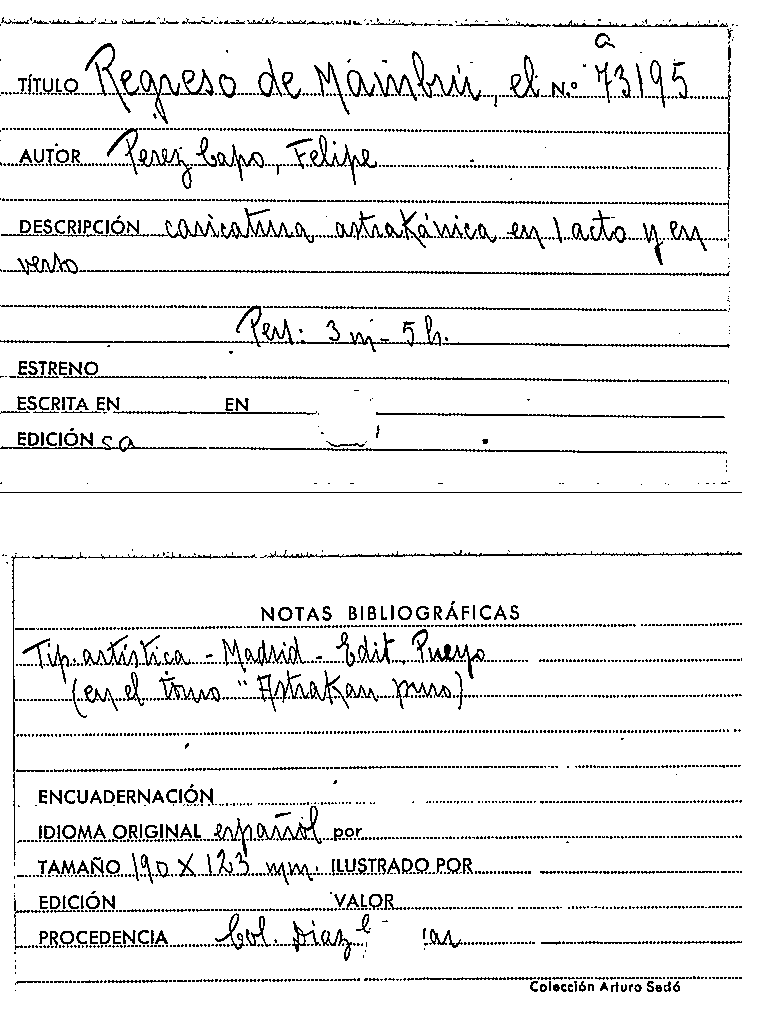 a
TÍTULO Regreso de Mambrú, el N.º 73195
AUTOR Perez Capo, Felipe
DESCRIPCIÓN caricatura astrakánica en 1 acto y en
verso
Pers: 3 m - 5 h.
ESTRENO
ESCRITA EN EN
EDICIÓN sa
NOTAS BIBLIOGRÁFICAS
Tip. artística - Madrid - Edit. Pueyo
(en el tomo "Astrakan puro)
ENCUADERNACIÓN
IDIOMA ORIGINAL español por
TAMAÑO 190 X 123 mm. ILUSTRADO POR
EDICIÓN VALOR
PROCEDENCIA Col. Diaz
Colección Arturo Sedó